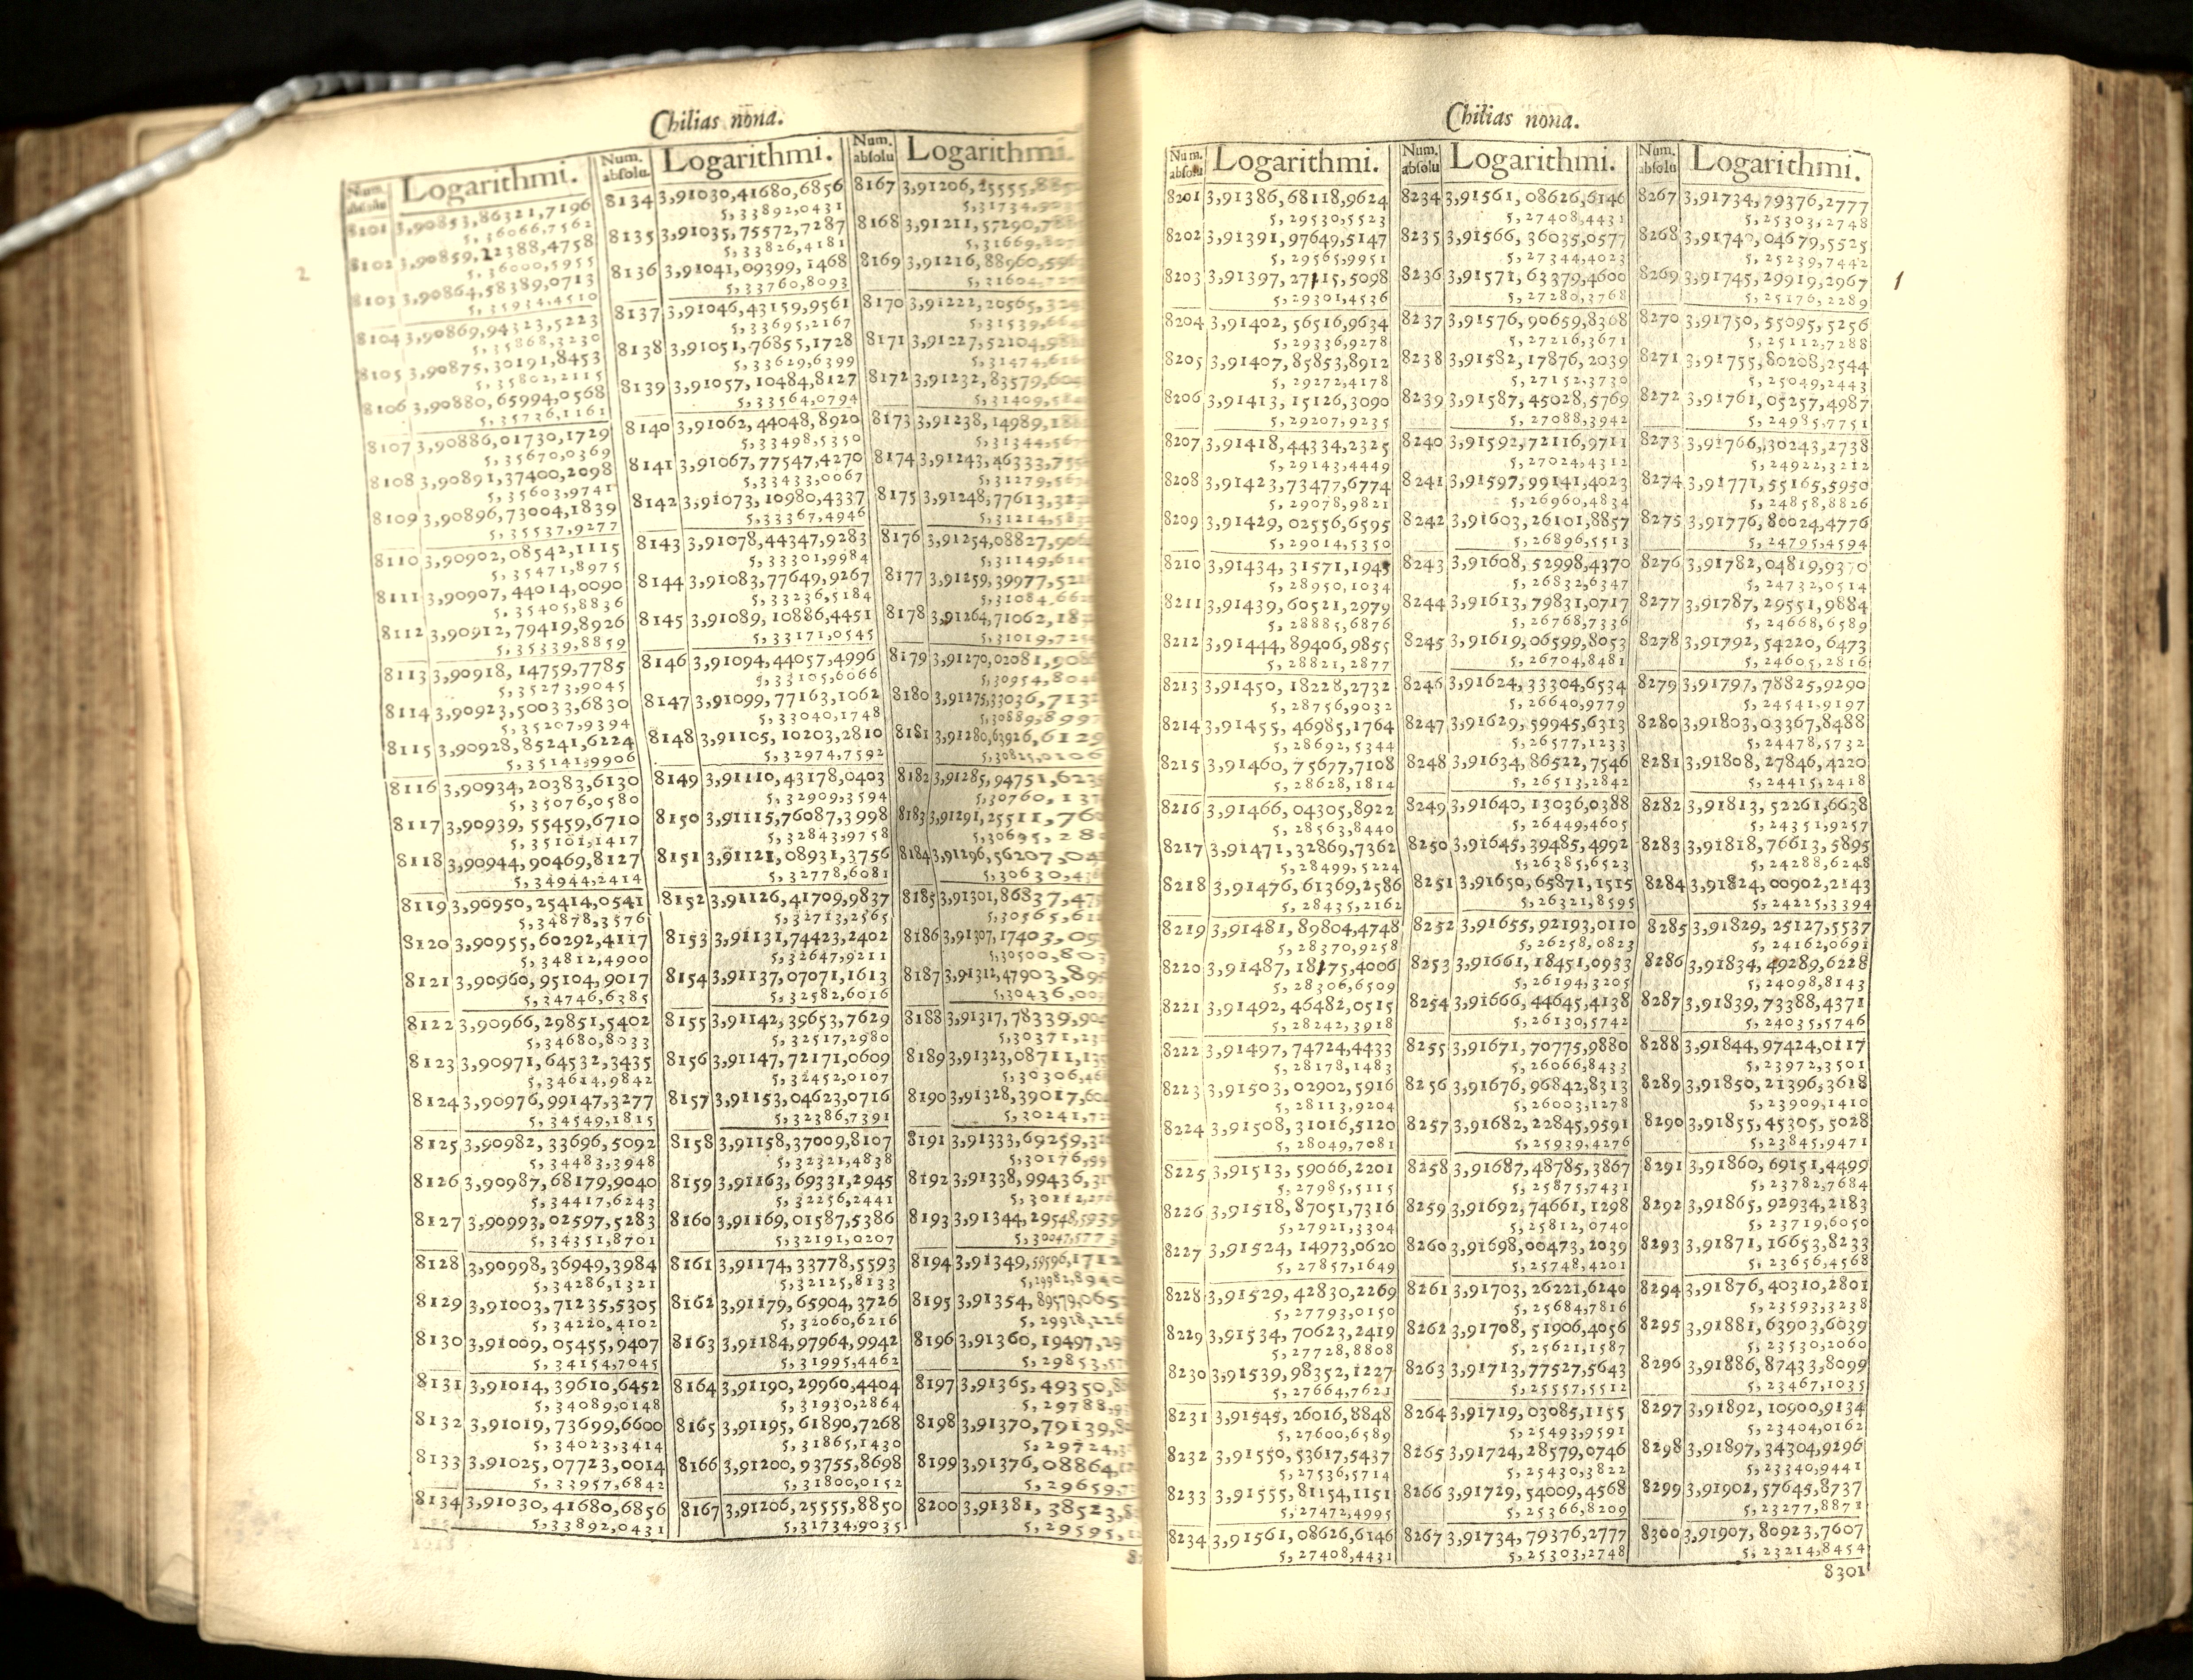 Chilias nona.
Num. absolu
Logarithmi.
8101 3,90853,86321,7196
5,36066,7562
8102 3,90859,22388,4758
5,36000,5955
8103 3,90864,58389,0713
5,35934,4510
8104 3,90869,94323,5223
5,35868,3230
8105 3,90875,30191,8453
5,35802,2115
8106 3,90880,65994,0568
5,35736,1161
8107 3,90886,01730,1729
5,35670,0369
8108 3,90891,37400,2098
5,35603,9741
8109 3,90896,73004,1839
5,35537,9277
8110 3,90902,08542,1115
5,35471,8975
8111 3,90907,44014,0090
5,35405,8836
8112 3,90912,79419,8926
5,35339,8859
8113 3,90918,14759,7785
5,35273,9045
8114 3,90923,50033,6830
5,35207,9394
8115 3,90928,85241,6224
5,35141,9906
8116 3,90934,20383,6130
5,35076,0580
8117 3,90939,55459,6710
5,35101,1417
8118 3,90944,90469,8127
5,34944,2414
8119 3,90950,25414,0541
5,34878,3576
8120 3,90955,60292,4117
5,34812,4900
8121 3,90960,95104,9017
5,34746,6385
8122 3,90966,29851,5402
5,34680,8033
8123 3,90971,64532,3435
5,34614,9842
8124 3,90976,99147,3277
5,34549,1815
8125 3,90982,33696,5092
5,34483,3948
8126 3,90987,68179,9040
5,34417,6243
8127 3,90993,02597,5283
5,34351,8701
8128 3,90998,36949,3984
5,34286,1321
8129 3,91003,71235,5305
5,34220,4102
8130 3,91009,05455,9407
5,34154,7045
8131 3,91014,39610,6452
5,34089,0148
8132 3,91019,73699,6600
5,34023,3414
8133 3,91025,07723,0014
5,33957,6842
8134 3,91030,41680,6856
5,33892,0431
Num. absolu.
Logarithmi.
8134 3,91030,41680,6856
5,33892,0431
8135 3,91035,75572,7287
5,33826,4181
8136 3,91041,09399,1468
5,33760,8093
8137 3,91046,43159,9561
5,33695,2167
8138 3,91051,76855,1728
5,33629,6399
8139 3,91057,10484,8127
5,33564,0794
8140 3,91062,44048,8920
5,33498,5350
8141 3,91067,77547,4270
5,33433,0067
8142 3,91073,10980,4337
5,33367,4946
8143 3,91078,44347,9283
5,33301,9984
8144 3,91083,77649,9267
5,33236,5184
8145 3,91089,10886,4451
5,33171,0545
8146 3,91094,44057,4996
5,33105,6066
8147 3,91099,77163,1062
5,33040,1748
8148 3,91105,10203,2810
5,32974,7592
8149 3,91110,43178,0403
5,32909,3594
8150 3,91115,76087,3998
5,32843,9758
8151 3,91121,08931,3756
5,32778,6081
8152 3,91126,41709,9837
5,32713,2565
8153 3,91131,74423,2402
5,32647,9211
8154 3,91137,07071,1613
5,32582,6016
8155 3,91142,39653,7629
5,32517,2980
8156 3,91147,72171,0609
5,32452,0107
8157 3,91153,04623,0716
5,32386,7391
8158 3,91158,37009,8107
5,32321,4838
8159 3,91163,69331,2945
5,32256,2441
8160 3,91169,01587,5386
5,32191,0207
8161 3,91174,33778,5593
5,32125,8133
8162 3,91179,65904,3726
5,32060,6216
8163 3,91184,97964,9942
5,31995,4462
8164 3,91190,29960,4404
5,31930,2864
8165 3,91195,61890,7268
5,31865,1430
8166 3,91200,93755,8698
5,31800,0152
8167 3,91206,25555,8850
5,31734,9035
Num. absolu
Logarithmi.
8167 3,91206,25555,
5,31734,
8168 3,91211,57290,
5,31669,
8169 3,91216,88960,
5,31604,
8170 3,91222,20565,
5,31539,
8171 3,91227,52104,
5,31474,
8172 3,91232,83579,
5,31409,
8173 3,91238,14989,
5,31344,
8174 3,91243,46333,
5,31279,
8175 3,91248,77613,
5,31214,
8176 3,91254,08827,
5,31149,
8177 3,91259,39977,
5,31084,
8178 3,91264,71062,
5,31019,
8179 3,91270,02081,
5,30954,
8180 3,91275,33036,7132
5,30889,8997
8181 3,91280,63926,6129
5,30825,0106
8182 3,91285,94751,623
5,30760,13
8183 3,91291,25511,76
5,30695,28
8184 3,91296,56207,04
5,30630,4
8185 3,91301,86837,47
5,30565,6
8186 3,91307,17403,0
5,30500,80
8187 3,91312,47903,8
5,30436,00
8188 3,91317,78339,90
5,30371,2
8189 3,91323,08711,1
5,30306,4
8190 3,91328,39017,60
5,30241,7
8191 3,91333,69259,3
5,30176,99
8192 3,91338,99436,3
5,30112,
8193 3,91344,29548,5939
5,30047,577
8194 3,91349,59596,1712
5,29982,8940
8195 3,91354,89579,065
5,29918,226
8196 3,91360,19497,29
5,29853,5
8197 3,91365,49350,8
5,29788,9
8198 3,91370,79139,8
5,29724,3
8199 3,91376,08864,1
5,29659,7
8200 3,91381,38523,8
5,29595,1
Chilias nona.
Num. absolu
Logarithmi.
8201 3,91386,68118,9624
5,29530,5523
8202 3,91391,97649,5147
5,29565,9951
8203 3,91397,27115,5098
5,29301,4536
8204 3,91402,56516,9634
5,29336,9278
8205 3,91407,85853,8912
5,29272,4178
8206 3,91413,15126,3090
5,29207,9235
8207 3,91418,44334,2325
5,29143,4449
8208 3,91423,73477,6774
5,29078,9821
8209 3,91429,02556,6595
5,29014,5350
8210 3,91434,31571,1945
5,28950,1034
8211 3,91439,60521,2979
5,28885,6876
8212 3,91444,89406,9855
5,28821,2877
8213 3,91450,18228,2732
5,28756,9032
8214 3,91455,46985,1764
5,28692,5344
8215 3,91460,75677,7108
5,28628,1814
8216 3,91466,04305,8922
5,28563,8440
8217 3,91471,32869,7362
5,28499,5224
8218 3,91476,61369,2586
5,28435,2162
8219 3,91481,89804,4748
5,28370,9258
8220 3,91487,18175,4006
5,28306,6509
8221 3,91492,46482,0515
5,28242,3918
8222 3,91497,74724,4433
5,28178,1483
8223 3,91503,02902,5916
5,28113,9204
8224 3,91508,31016,5120
5,28049,7081
8225 3,91513,59066,2201
5,27985,5115
8226 3,91518,87051,7316
5,27921,3304
8227 3,91524,14973,0620
5,27857,1649
8228 3,91529,42830,2269
5,27793,0150
8229 3,91534,70623,2419
5,27728,8808
8230 3,91539,98352,1227
5,27664,7621
8231 3,91545,26016,8848
5,27600,6589
8232 3,91550,53617,5437
5,27536,5714
8233 3,91555,81154,1151
5,27472,4995
8234 3,91561,08626,6146
5,27408,4431
Num. absolu
Logarithmi.
8234 3,91561,08626,6146
5,27408,4431
8235 3,91566,36035,0577
5,27344,4023
8236 3,91571,63379,4600
5,27280,3768
8237 3,91576,90659,8368
5,27216,3671
8238 3,91582,17876,2039
5,27152,3730
8239 3,91587,45028,5769
5,27088,3942
8240 3,91592,72116,9711
5,27024,4312
8241 3,91597,99141,4023
5,26960,4834
8242 3,91603,26101,8857
5,26896,5513
8243 3,91608,52998,4370
5,26832,6347
8244 3,91613,79831,0717
5,26768,7336
8245 3,91619,06599,8053
5,26704,8481
8246 3,91624,33304,6534
5,26640,9779
8247 3,91629,59945,6313
5,26577,1233
8248 3,91634,86522,7546
5,26513,2842
8249 3,91640,13036,0388
5,26449,4605
8250 3,91645,39485,4992
5,26385,6523
8251 3,91650,65871,1515
5,26321,8595
8252 3,91655,92193,0110
5,26258,0823
8253 3,91661,18451,0933
5,26194,3205
8254 3,91666,44645,4138
5,26130,5742
8255 3,91671,70775,9880
5,26066,8433
8256 3,91676,96842,8313
5,26003,1278
8257 3,91682,22845,9591
5,25939,4276
8258 3,91687,48785,3867
5,25875,7431
8259 3,91692,74661,1298
5,25812,0740
8260 3,91698,00473,2039
5,25748,4201
8261 3,91703,26221,6240
5,25684,7816
8262 3,91708,51906,4056
5,25621,1587
8263 3,91713,77527,5643
5,25557,5512
8264 3,91719,03085,1155
5,25493,9591
8265 3,91724,28579,0746
5,25430,3822
8266 3,91729,54009,4568
5,25366,8209
8267 3,91734,79376,2777
5,25303,2748
Num. absolu
Logarithmi.
8267 3,91734,79376,2777
5,25303,2748
8268 3,91740,04679,5525
5,25239,7442
8269 3,91745,29919,2967
5,25176,2289
8270 3,91750,55095,5256
5,25112,7288
8271 3,91755,80208,2544
5,25049,2443
8272 3,91761,05257,4987
5,24985,7751
8273 3,91766,30243,2738
5,24922,3212
8274 3,91771,55165,5950
5,24858,8826
8275 3,91776,80024,4776
5,24795,4594
8276 3,91782,04819,9370
5,24732,0514
8277 3,91787,29551,9884
5,24668,6589
8278 3,91792,54220,6473
5,24605,2816
8279 3,91797,78825,9290
5,24541,9197
8280 3,91803,03367,8488
5,24478,5732
8281 3,91808,27846,4220
5,24415,2418
8282 3,91813,52261,6638
5,24351,9257
8283 3,91818,76613,5895
5,24288,6248
8284 3,91824,00902,2143
5,24225,3394
8285 3,91829,25127,5537
5,24162,0691
8286 3,91834,49289,6228
5,24098,8143
8287 3,91839,73388,4371
5,24035,5746
8288 3,91844,97424,0117
5,23972,3501
8289 3,91850,21396,3618
5,23909,1410
8290 3,91855,45305,5028
5,23845,9471
8291 3,91860,69151,4499
5,23782,7684
8292 3,91865,92934,2183
5,23719,6050
8293 3,91871,16653,8233
5,23656,4568
8294 3,91876,40310,2801
5,23593,3238
8295 3,91881,63903,6039
5,23530,2060
8296 3,91886,87433,8099
5,23467,1035
8297 3,91892,10900,9134
5,23404,0162
8298 3,91897,34304,9296
5,23340,9441
8299 3,91902,57645,8737
5,23277,8871
8300 3,91907,80923,7607
5,23214,8454
8301